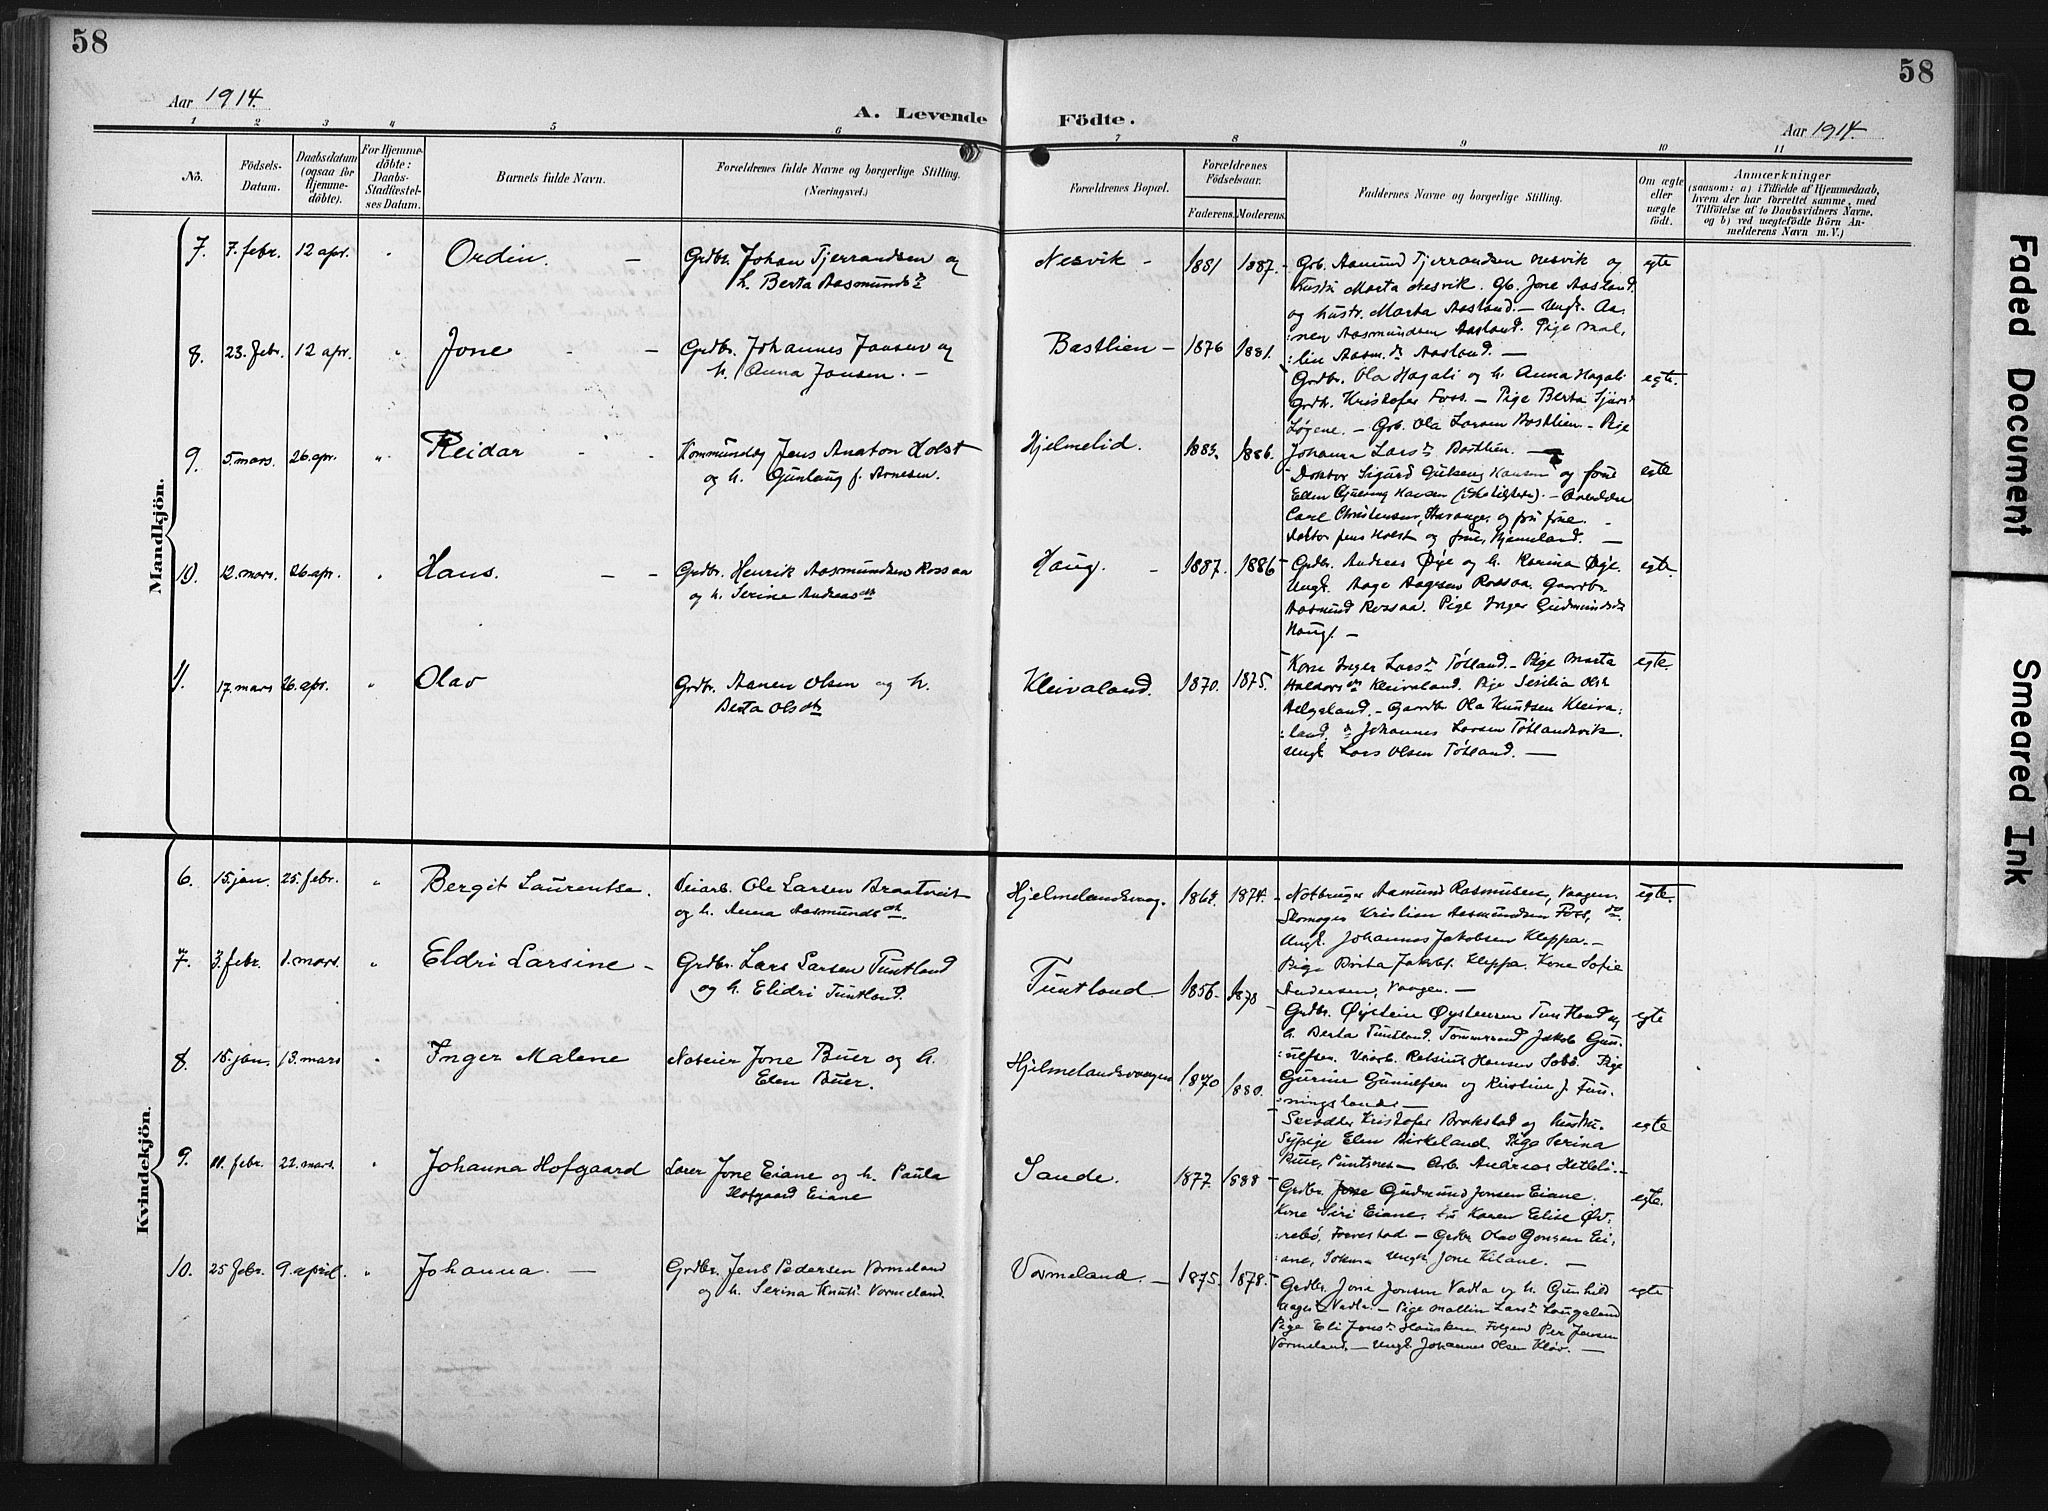 58
58
Aar 1914.
A. Levende Födte.
Aar 1914.
1 2 3 4 5 6 7 8 9 10 11
No.
Födsels-Datum.
Daabsdatum (ogsaa for Hjemme-döbte).
For Hjemme-döbte: Daabs-Stadfæstel-ses Datum.
Barnets fulde Navn.
Forældrenes fulde Navne og borgerlige Stilling.
(Næringsvei.)
Forældrenes Bopæl.
Forældrenes Födselsaar.
Faderens. Moderens.
Faddernes Navne og borgerlige Stilling.
Om ægte eller uægte födt.
Anmærkninger
(saasom: a) i Tilfælde af Hjemmedaab,
hvem der har forrettet samme, med
Tilföielse af to Daabsvidners Navne,
og b) ved uægtefödte Börn An-
melderens Navn m. V.)
Mandkjön.
7. 7. febr. 12 apr. " Ordin. — Grdbr. Johan Tjerrandsen og
h. Berta Aasmundsdn
Nesvik - 1881 1887. Grb. Aamund Tjerrandsen Nesvik og egte
Hustr. Marta Nesvik. Gb. Jone Aasland
og hustr. Marta Aasland. — Ungk. Aa-
:nen Aasmundsen Aasland. Pige Mal,
:lin Aasm.dn Aasland. —
8. 23. febr. 12 apr. " Jone - — Grdbr. Johannes Jonsen og
h. Anna Jonsen. —
Bastlien — 1876 1881. Grdbr. Ola Hagali og h. Anna Hagali egte.
Grdbr. Kristofer Foss. — Pige Berta
Løgene. — Grb. Ola Larsen Bastlien — Pige
Johanna Larsdn Bastlien. —
9. 5. mars. 26. apr. " Reidar - - Jens Anaton Holst
og h. Gunlaug f. Arnesen.
Hjelmelid. 1883. 1886. Doktor Sigurd Hansen og frue egte
Ellen Hansen
Carl Christensen, Stavanger og fru
Doktor Jens Holst og frue, Hjemeland. —
10. 12. mars. 26 apr. " Hans. — - Grdbr. Henrik Aasmundsen Rossaa
og h. Serine Andreasdtr
Haug. - 1887. 1886 Grdbr. Andreas Øye og h. Karina Øye. egte.
Ungk. Aage Aagesen Rossaa. Gaardbr.
Aasmund Rossaa. Pige Inger Gudmundsdn
Haug. —
11. 17. mars 26. apr. " Olav Grdbr. Aanen Olsen og h.
Berta Olsdtr
Kleivaland. 1870. 1875. Kone Inger Larsdn Tøtland. — Pige Marta egte.
Haldorsdtr Kleivaland. Pige Sesilia Olsdn
Helgaland. — Gaardbr. Ola Knudsen Kleiva:
:land. Johannes Larsen Tøtlandsvik.
Ungk. Lars Olsen Tøtland. —
Kvindekjön.
6. 15. jan. 25. febr. " Bergit Laurentse. Veiarb. Ole Larsen Braatveit
og h. Anna Aasmundsdtr.
Hjelmelandsvaag. 1862. 1874. Notbruger Aamund Rasmusen, Vaagen. egte.
Skomager Kristian Aasmundsen Foss, do.
Ungk. Johannes Jakobsen Kleppa. —
Pige Brita Jakobs. Kleppa. Kone Sofie
Andersen, Vaagen. —
7. 3. febr. 1. mars. " Eldri Larsine — Grdbr. Lars Larsen Tuntland
og h. Elidri Tuntland.
Tuntland. 1856. 1873 Grdbr. Øystein Øystensen Tuntland og egte
h. Berta Tuntland. Tømmermand Jakob Gun-
:ulfsen. Veiarb. Hansen Pige
Gurine Gunulfsen og Kristine J. Fun-
:ningsland. —
8. 15. jan. 13. mars " Inger Malene Notbeier Jone Buer og h.
Elen Buer.
Hjelmelandsvaagen 1870 1880. Kristofer Brokstad og hustru. egte
Sypige Elen Birkeland, Pige Serina
Buer, Puntsnes — Arb. Andreas Hetleli. —
9. 11. febr. 22. mars. " Johanna Hofgaard Lærer Jone Eiane og h. Paula
Hofgaard Eiane
Sande. 1877. 1888 Grdbr. Gudmund Jonsen Eiane. egte.
Kone Siri Eiane. Karen Elise Øv-
:rebø, — Grdbr Olav Gonsen Ei-
:ane, Ungk. Jone Kilane. —
10. 25 febr. 9. april. " Johanna. — Grdbr. Jens Pedersen Vormeland
og h. Serina Knuts. Vormeland.
Vormeland. — 1875. 1878. Grdbr. Jone Jonsen Vadla og h. Gunhild egte
Aagesdn Vadla. — Pige Mallin Larsdn Laugaland
Pige Eli Jonsdn Hausken. Per Jensen
Vormeland. — Ungk. Johannes Olsen Kløv. —
Faded Document
Smeared Ink